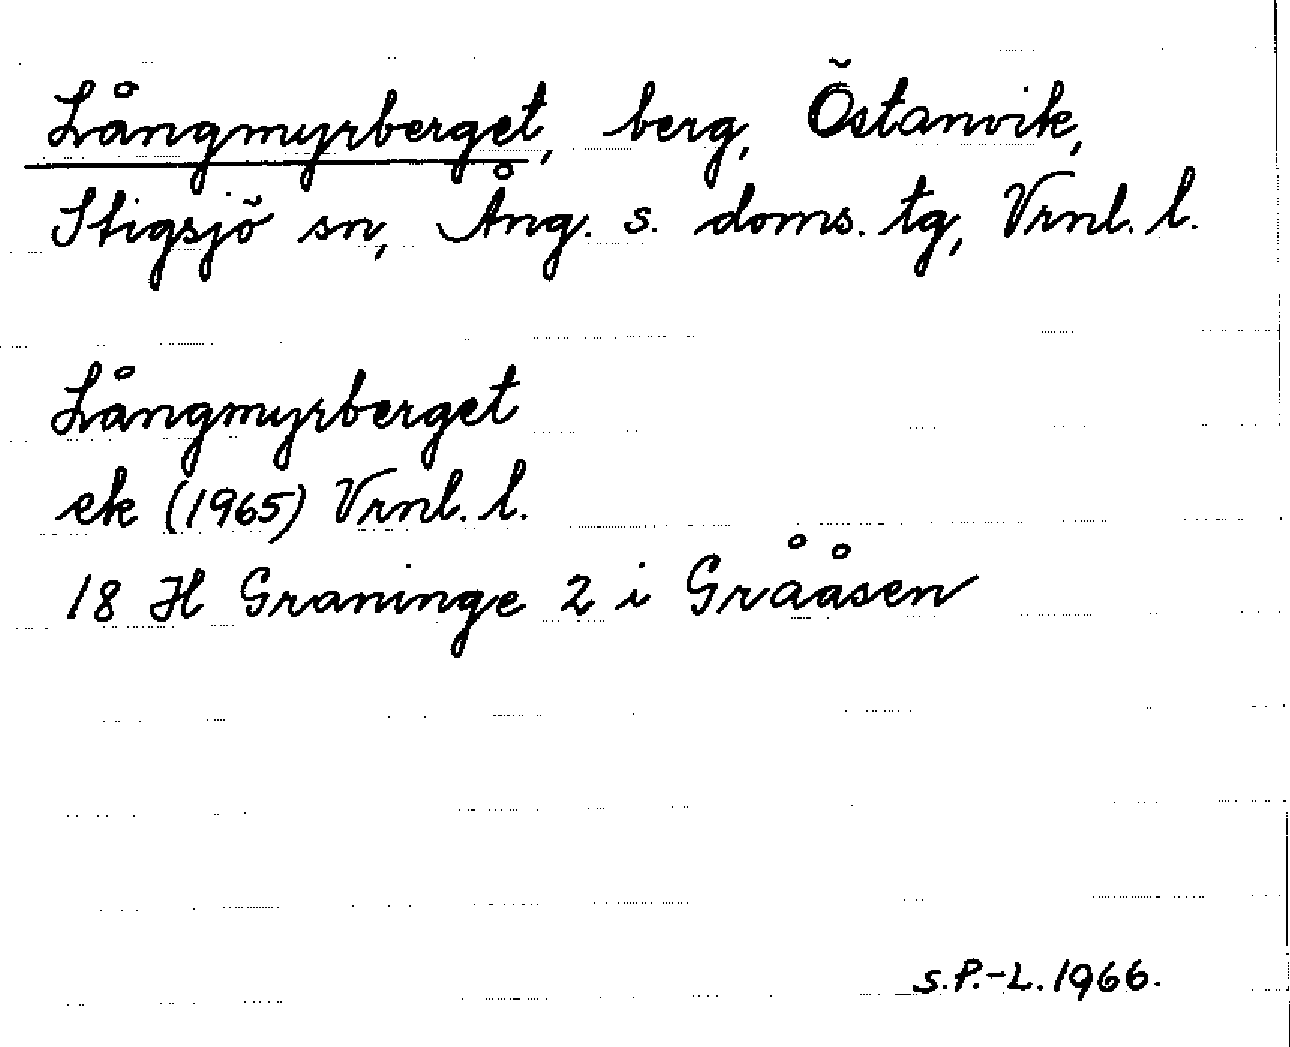 Långmyrberget, berg, Östanvik,
Stigsjö sn, Ång. s. doms. tg, Vrnl. l.
Långmyrberget
ek (1965) Vrnl. l.
18 H Graninge 2 i Grååsen
S.P.-L. 1966.